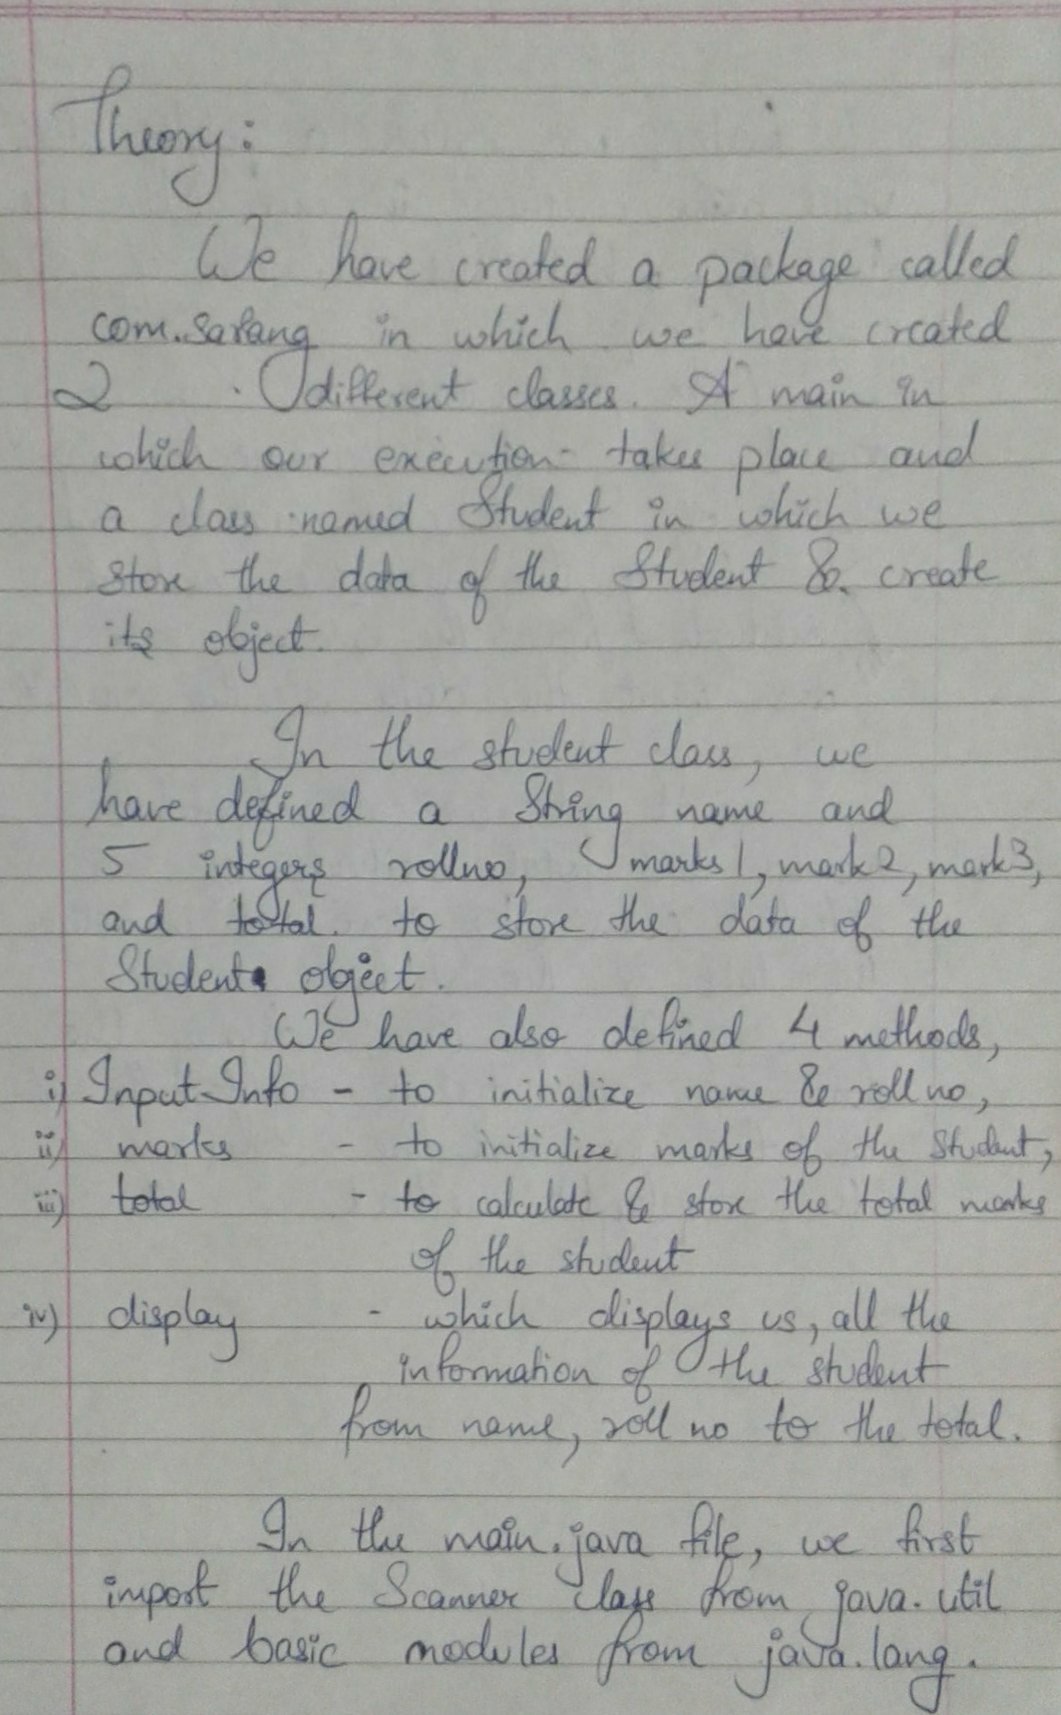 Theory:
We have created a package called
com.sarang in which we have created
2 different classes. A main in
which our execution takes place and
a class named Student in which we
store the data of the Student & create
its object.
In the student class, we
have defined a String name and
5 integers rollno, marks1, mark2, mark3,
and total. to store the data of the
Student object.
We have also defined 4 methods,
i) Input Info - to initialize name & roll no,
ii) marks - to initialize marks of the Student,
iii) total - to calculate & store the total marks
of the student
iv) display - which displays us, all the
information of the student
from name, roll no to the total.
In the main.java file, we first
import the Scanner class from java.util
and basic modules from java.lang.